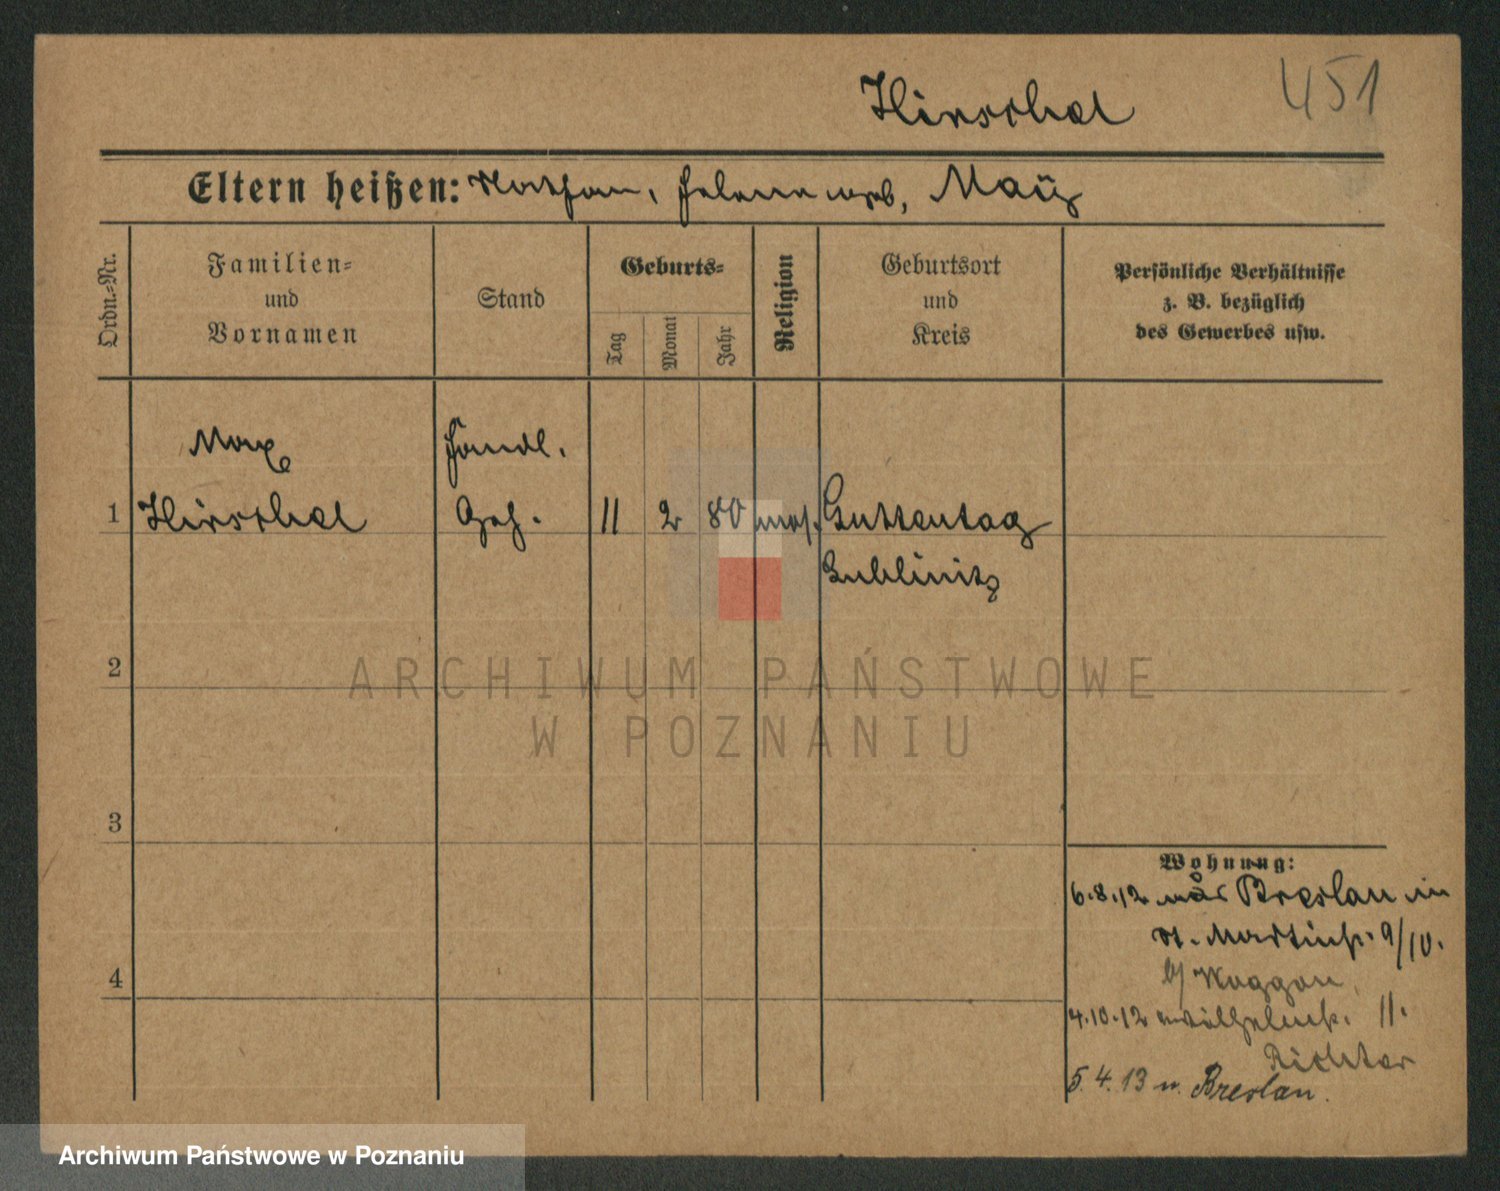 451
Hirschel
Eltern heißen: Nathan, Helene geb. Maÿ
Ordn.-Nr.
Familien-
und
Vornamen
Stand
Geburts-
Tag
Monat
Jahr
Religion
Geburtsort
und
Kreis
Persönliche Verhältnisse
z. B. bezüglich
des Gewerbes usw.
Max Handl.
1 Hirschel Geh. 11 2 80 mos. Guttentag
Lublinitz
2
3
4
Wohnung:
6.8.12 aus Breslau in
St. Martinstr. 9/10.
b/
4.10.12 Wilhelmstr. 11.
Richter
5.4.13 n. Breslau.
ARCHIWUM PAŃSTWOWE
W POZNANIU
Archiwum Państwowe w Poznaniu